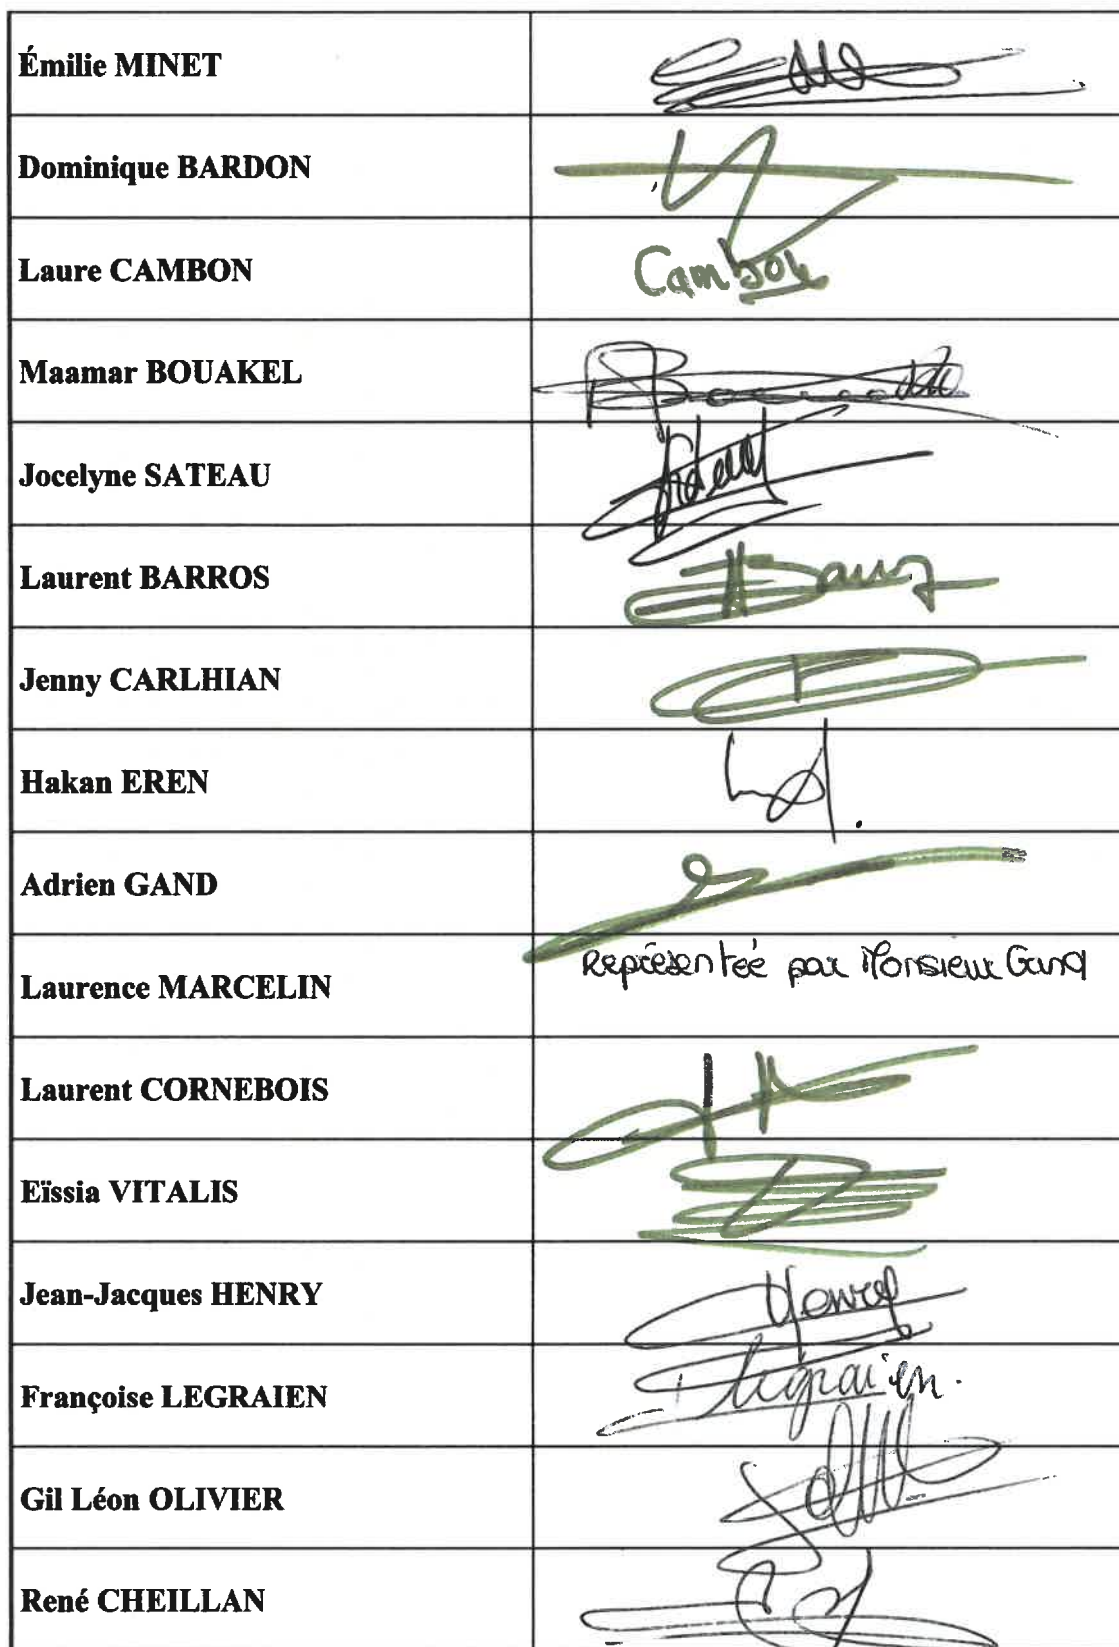 Émilie MINET
Dominique BARDON
Laure CAMBON Cambon
Maamar BOUAKEL
Jocelyne SATEAU
Laurent BARROS
Jenny CARLHIAN
Hakan EREN
Adrien GAND
Laurence MARCELIN Représentée par Monsieur Gand
Laurent CORNEBOIS
Eïssia VITALIS
Jean-Jacques HENRY Henry
Françoise LEGRAIEN Legraien.
Gil Léon OLIVIER
René CHEILLAN